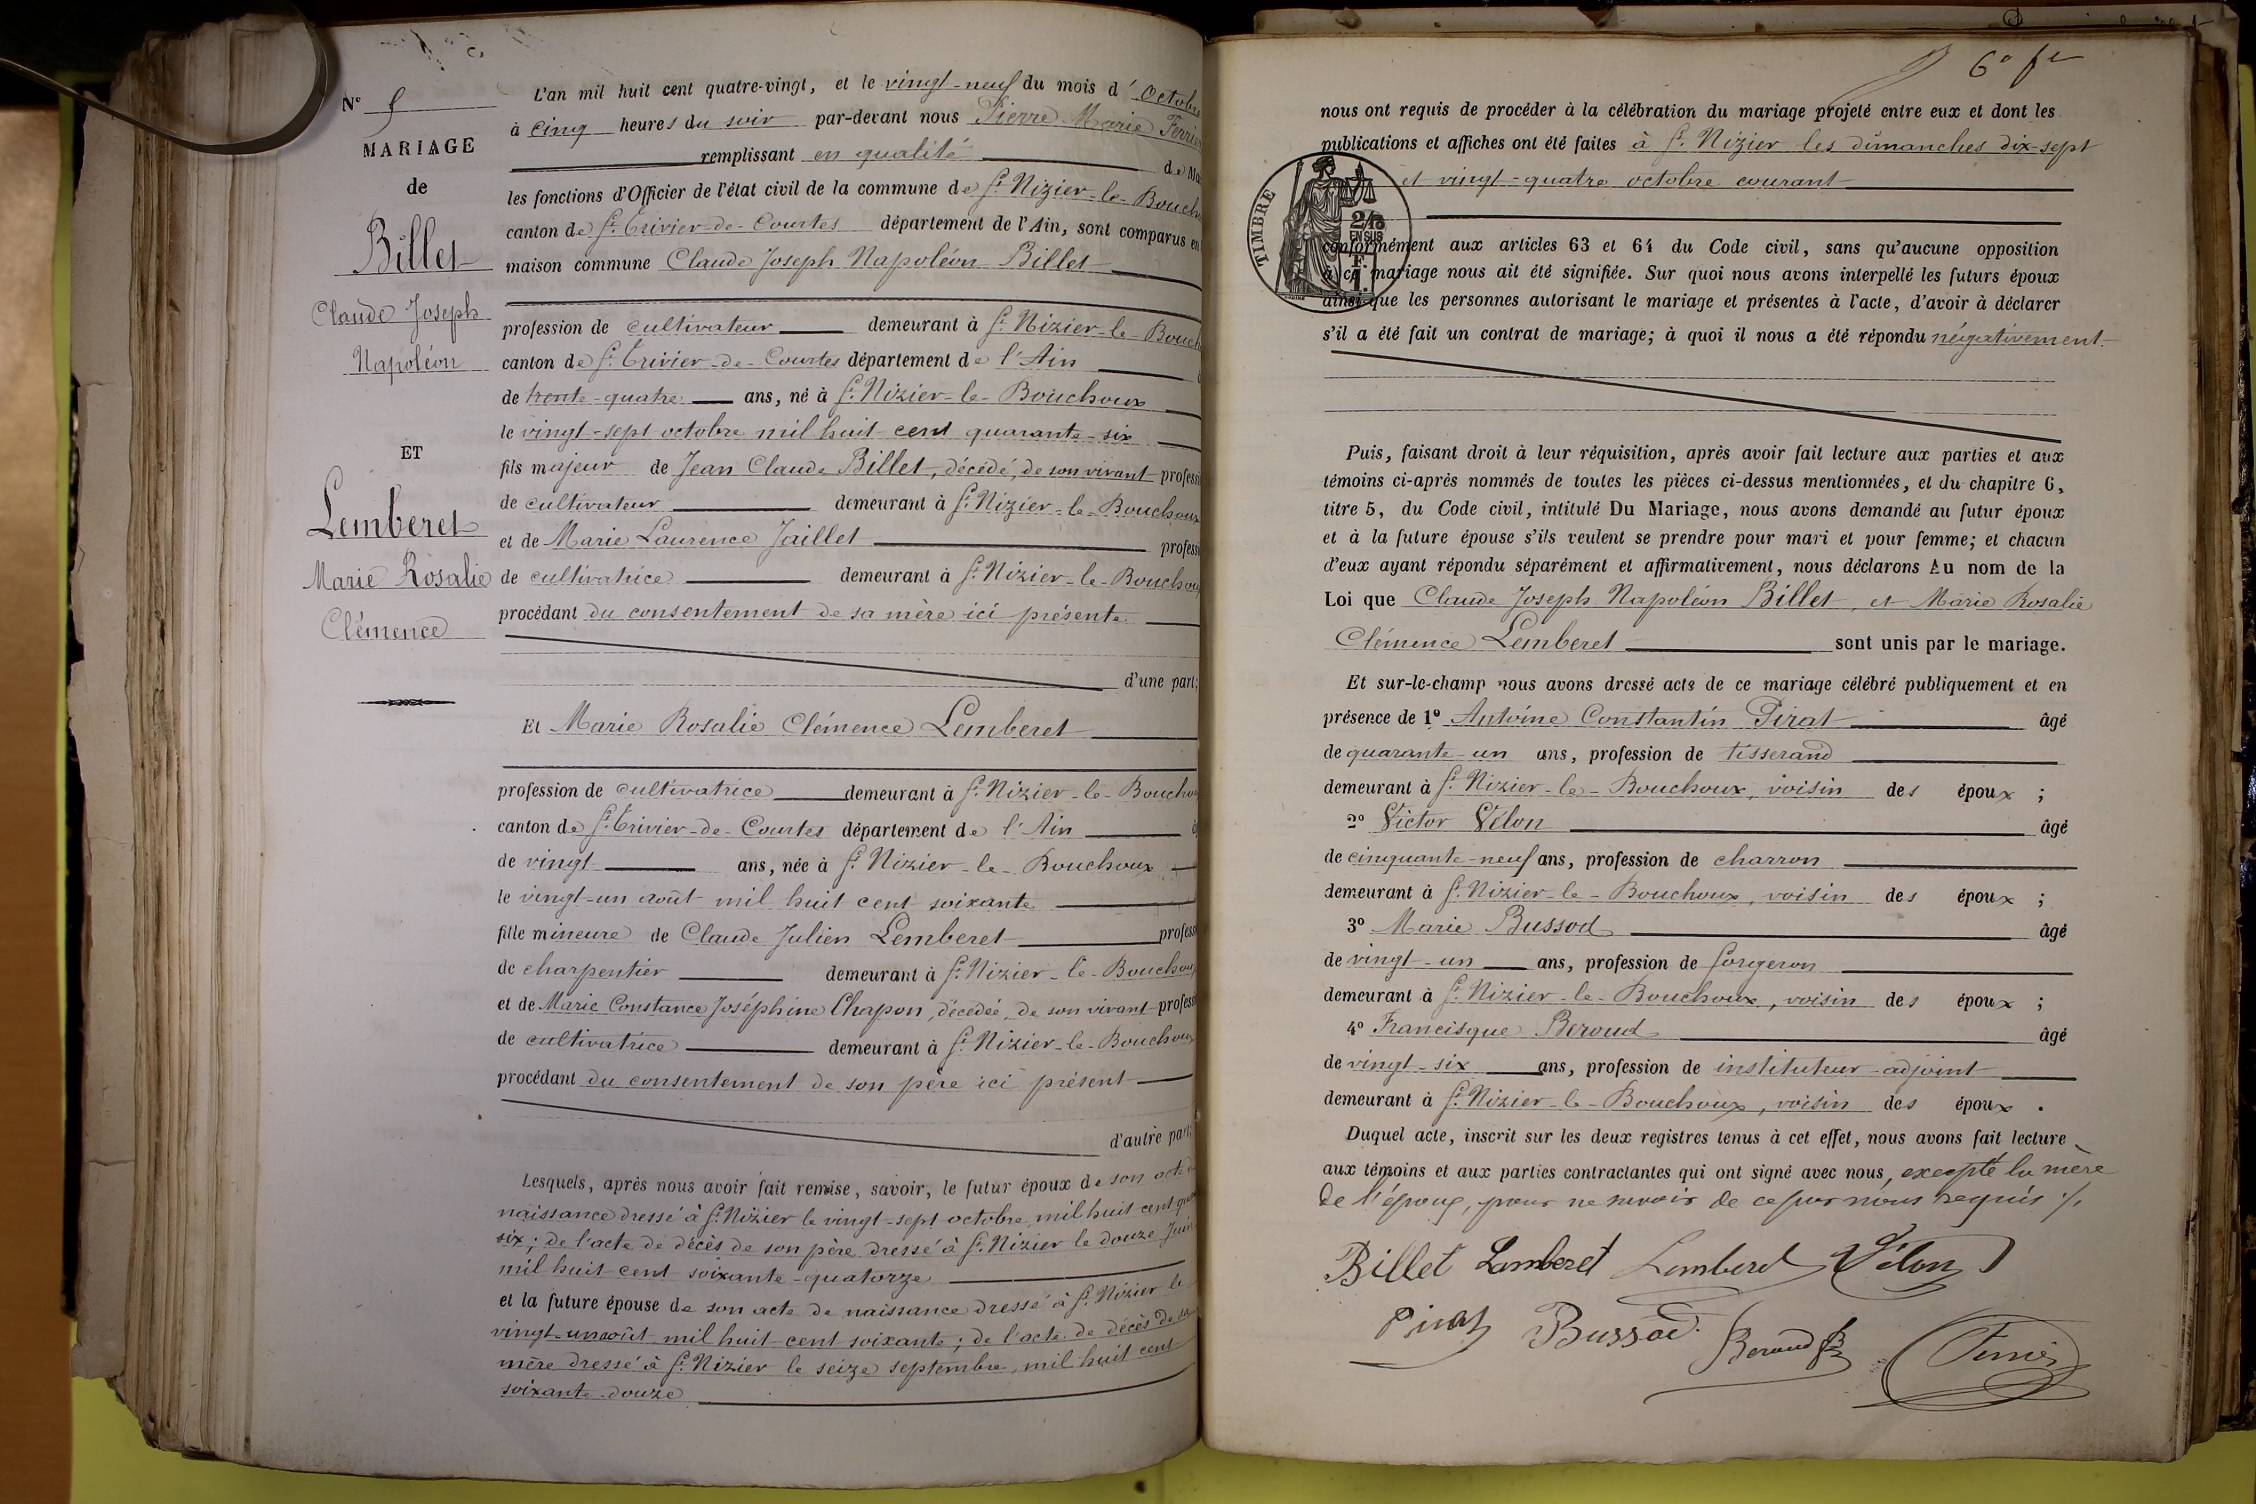 N° 5
MARIAGE
de
Billet
Claude Joseph
Napoléon
ET
Lemberet
Marie Rosalie
Clémence
L'an mil huit cent quatre-vingt, et le vingt-neuf du mois d'Octobre
à cinq heures du soir par-devant nous Pierre Marie Ferrier
remplissant en qualité de Ma
les fonctions d'Officier de l'état civil de la commune de St Nizier-le-Bouch
canton de St Trivier-de-Courtes département de l'Ain, sont comparus en
maison commune Claude Joseph Napoléon Billet
profession de cultivateur demeurant à St Nizier-le-Bouch
canton de St Trivier-de-Courtes département de l'Ain
de trente-quatre ans, né à St Nizier-le-Bouchoux
le vingt-sept octobre mil huit cent quarante-six
fils majeur de Jean Claude Billet, décédé, de son vivant professi
de cultivateur demeurant à St Nizier-le-Bouchoux
et de Marie Laurence Jaillet professi
de cultivatrice demeurant à St Nizier-le-Bouchoux
procédant du consentement de sa mère ici présente
d'une part;
Et Marie Rosalie Clémence Lemberet
profession de cultivatrice demeurant à St Nizier-le-Boucho
canton de St Trivier-de-Courtes département de l'Ain
de vingt ans, née à St Nizier-le-Bouchoux
le vingt-un août mil huit cent soixante
fille mineure de Claude Julien Lemberet profess
de charpentier demeurant à St Nizier-le-Bouchoux
et de Marie Constance Joséphine Chapon, décédée, de son vivant profess
de cultivatrice demeurant à St Nizier-le-Bouchoux
procédant du consentement de son père ici présent
d'autre part;
Lesquels, après nous avoir fait remise, savoir, le futur époux de son acte de
naissance dressé à St Nizier le vingt-sept octobre mil huit cent quar
six; de l'acte de décès de son père dressé à St Nizier le douze Juin
mil huit cent soixante-quatorze
et la future épouse de son acte de naissance dressé à St Nizier le
vingt-un août mil huit cent soixante; de l'acte de décès de sa
mère dressé à St Nizier le seize septembre mil huit cent
soixante-douze
6e
nous ont requis de procéder à la célébration du mariage projeté entre eux et dont les
publications et affiches ont été faites à St Nizier les dimanches dix-sept
et vingt-quatre octobre courant
TIMBRE
2/10
EN SUS
F.
1.
conformément aux articles 63 et 64 du Code civil, sans qu'aucune opposition
à ce mariage nous ait été signifiée. Sur quoi nous avons interpellé les futurs époux
ainsi que les personnes autorisant le mariage et présentes à l'acte, d'avoir à déclarer
s'il a été fait un contrat de mariage; à quoi il nous a été répondu négativement.
Puis, faisant droit à leur réquisition, après avoir fait lecture aux parties et aux
témoins ci-après nommés de toutes les pièces ci-dessus mentionnées, et du chapitre 6,
titre 5, du Code civil, intitulé Du Mariage, nous avons demandé au futur époux
et à la future épouse s'ils veulent se prendre pour mari et pour femme; et chacun
d'eux ayant répondu séparément et affirmativement, nous déclarons Au nom de la
Loi que Claude Joseph Napoléon Billet, et Marie Rosalie
Clémence Lemberet sont unis par le mariage.
Et sur-le-champ nous avons dressé acte de ce mariage célébré publiquement et en
présence de 1° Antoine Constantin Pirat âgé
de quarante-un ans, profession de tisserand
demeurant à St Nizier-le-Bouchoux, voisin des époux ;
2° Victor Vélon âgé
de cinquante-neuf ans, profession de charron
demeurant à St Nizier-le-Bouchoux, voisin des époux ;
3° Marie Bussod âgé
de vingt-un ans, profession de forgeron
demeurant à St Nizier-le-Bouchoux, voisin des époux ;
4° Francisque Beroud âgé
de vingt-six ans, profession de instituteur-adjoint
demeurant à St Nizier-le-Bouchoux, voisin des époux .
Duquel acte, inscrit sur les deux registres tenus à cet effet, nous avons fait lecture
aux témoins et aux parties contractantes qui ont signé avec nous, excepté la mère
de l'époux, pour ne savoir de ce par nous requis ./.
Billet Lemberet Lemberet Vélon
Pirat Bussod. Beroud Ferrier